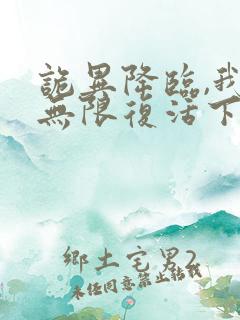 詭異降臨,我
無限復活下
鄉土宅男2
未經同意禁止轉載